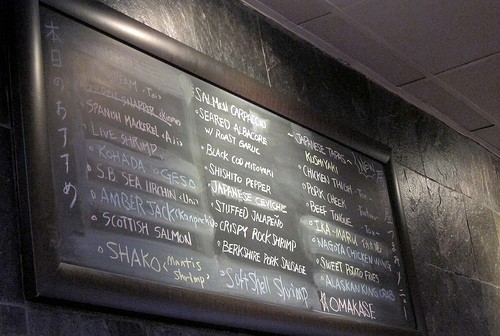 本日のおすすめ
SPANISH MACKEREL (Aji)
LIVE SHRIMP
KOHADA GESO
S.B. SEA URCHIN (Uni)
AMBERJACK (Kanpachi)
SCOTTISH SALMON
SHAKO (mantis shrimp)
SALMON CARPACCIO
SEARED ALBACORE
W/ ROAST GARLIC
BLACK COD MISOYAKI
SHISHITO PEPPER
JAPANESE CEVICHE
STUFFED JALAPEÑO
CRISPY ROCK SHRIMP
BERKSHIRE PORK SAUSAGE
Soft Shell Shrimp
~JAPANESE TAPAS~
KUSHIYAKI
CHICKEN THIGH
PORK CHEEK
BEEF TONGUE
IKA-MARU
NAGOYA CHICKEN WING
SWEET POTATO FRIES
ALASKAN KING CRAB
OMAKASE